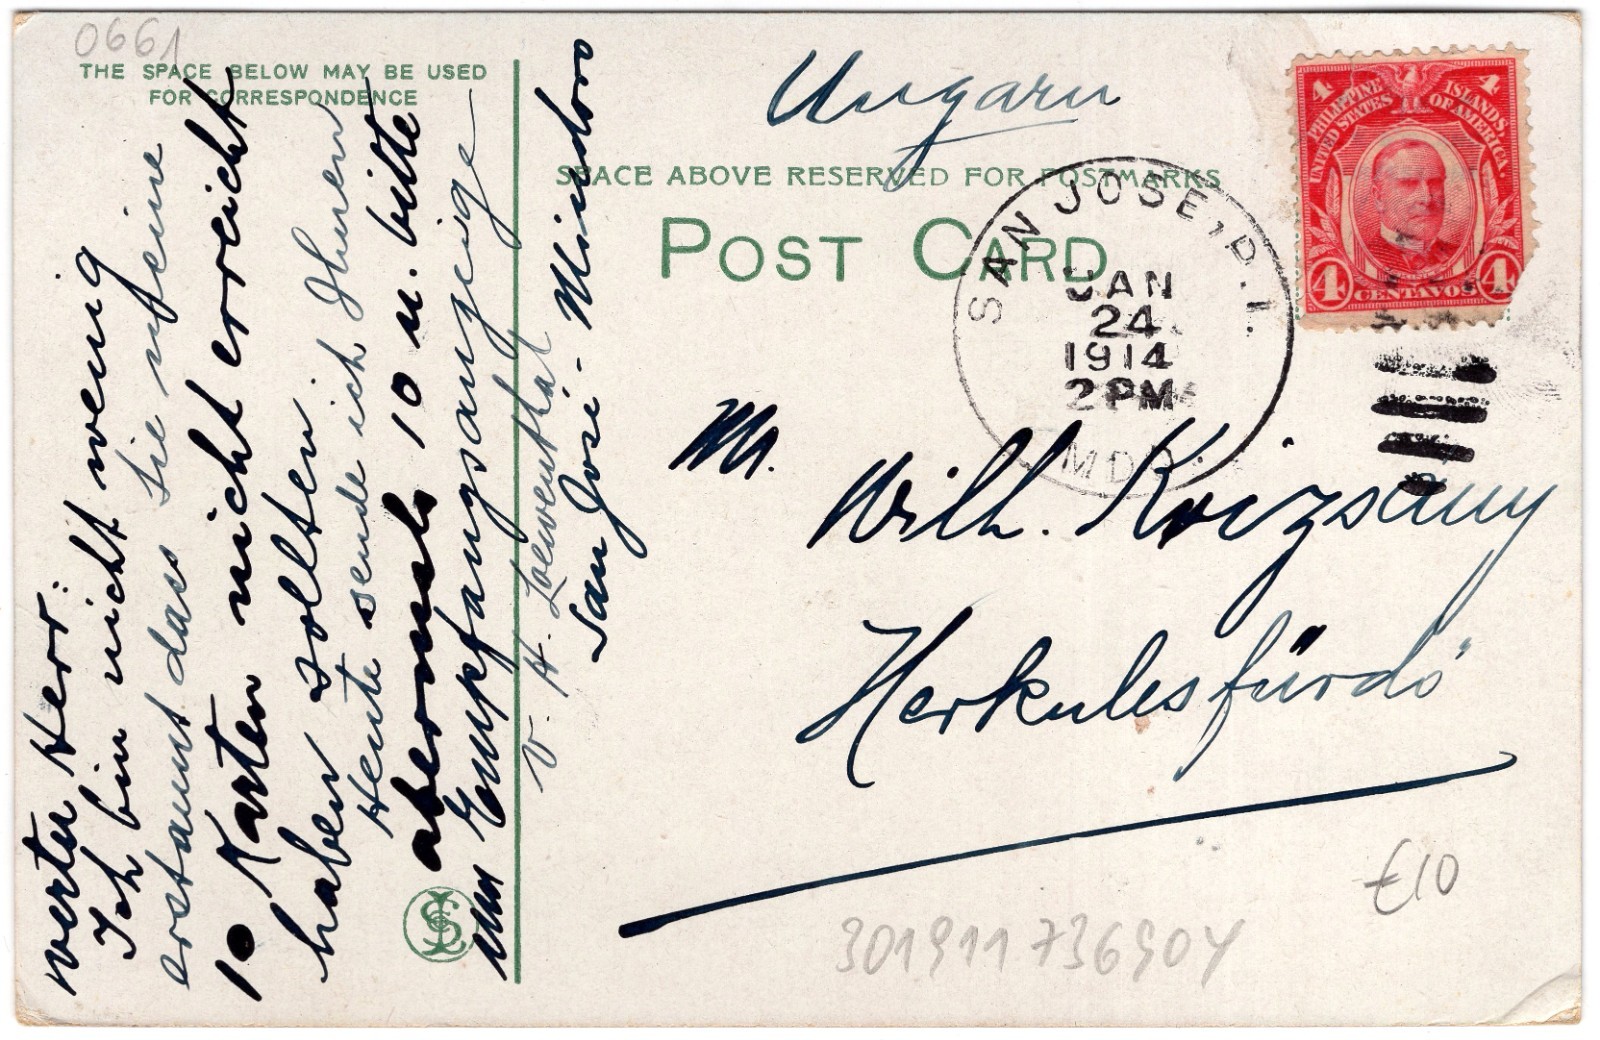 0661
THE SPACE BELOW MAY BE USED
FOR CORRESPONDENCE
werter Herr:
Ich bin nicht wenig
erstaunt dass Sie meine
10 Karten nicht erreicht
haben sollten
Heute sende ich Ihnen
abermals 10 u. bitte
um Empfangsanzeige
V. H. Loewenthal
San José - Mindoro
Ungarn
SPACE ABOVE RESERVED FOR POSTMARKS
POST CARD
PHILIPPINE ISLANDS,
UNITED STATES OF AMERICA.
4 4
4 CENTAVOS 4
SAN JOSE, P.I.
JAN
24
1914
2 PM
MDO.
Mr.
Wilh.
Herkulesfürdő
€10
301911736904